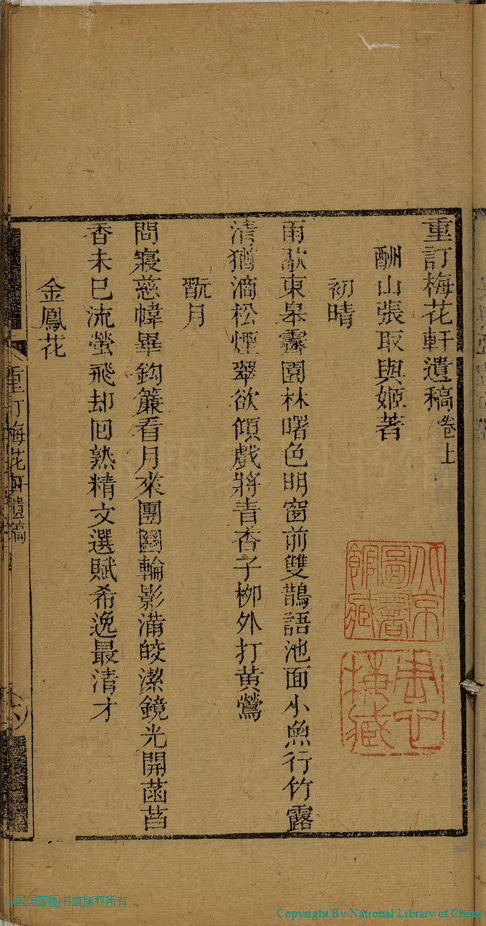 重訂梅花軒遺稿卷上
酬山張取與姬著
初晴
雨歇東皋霽園林曙色明窗前雙鵲語池面小魚行竹露
清猶滴松煙翠欲傾戲將青杏子柳外打黃鶯
翫月
問寢慈幃畢鈎簾看月來團圞輪影滿皎潔鏡光開菡萏
香未已流螢飛却回熟精文選賦希逸最清才
金鳳花
重訂梅花軒遺稿
北京圖書館藏
中国国家图书馆版权所有
Copyright By National Library of China